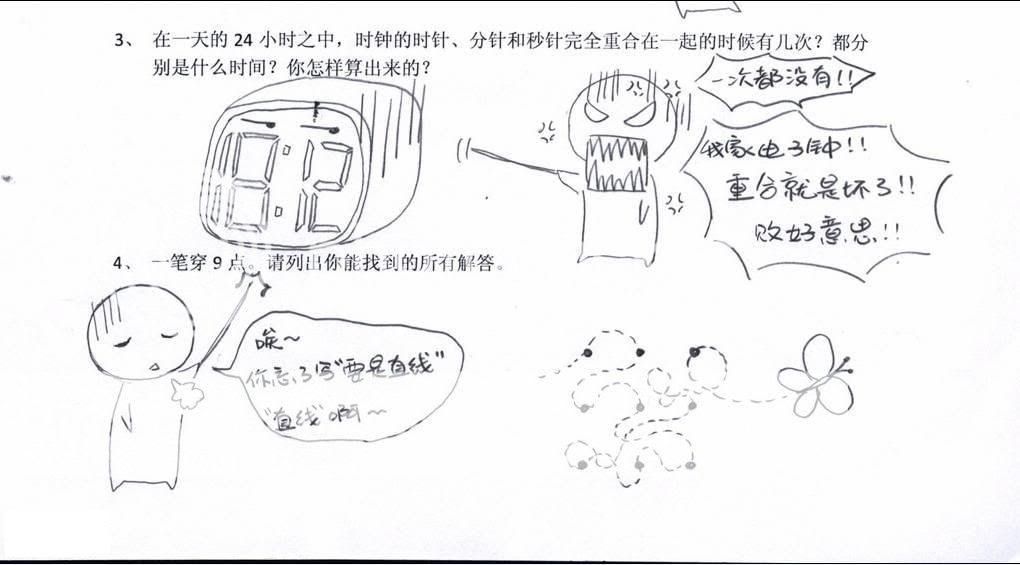 3、 在一天的 24 小时之中，时钟的时针、分针和秒针完全重合在一起的时候有几次？都分
别是什么时间？你怎样算出来的？
一次都没有!!
我家电子钟!!
重合就是坏了!!
败好意思!!
4、 一笔穿 9 点。请列出你能找到的所有解答。
唉～
你忘了写"要是直线"
"直线"啊～